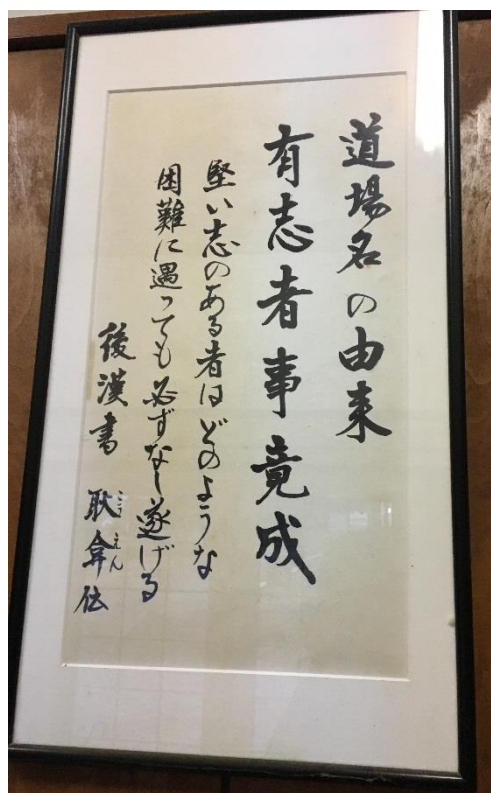 道場名の由来
有志者事竟成
堅い志のある者はどのような
困難に遇っても必ずなし遂げる
後漢書 耿弇伝
こうえん